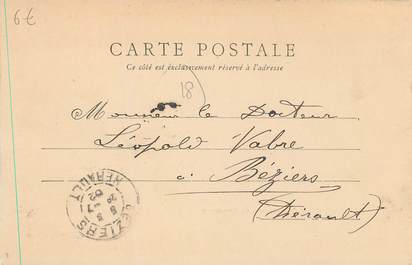 6€
CARTE POSTALE
Ce côté est exclusivement réservé à l'adresse
18
Monsieur le Docteur
Léopold Vabre
à Béziers
(Hérault)
BEZIERS
HERAULT